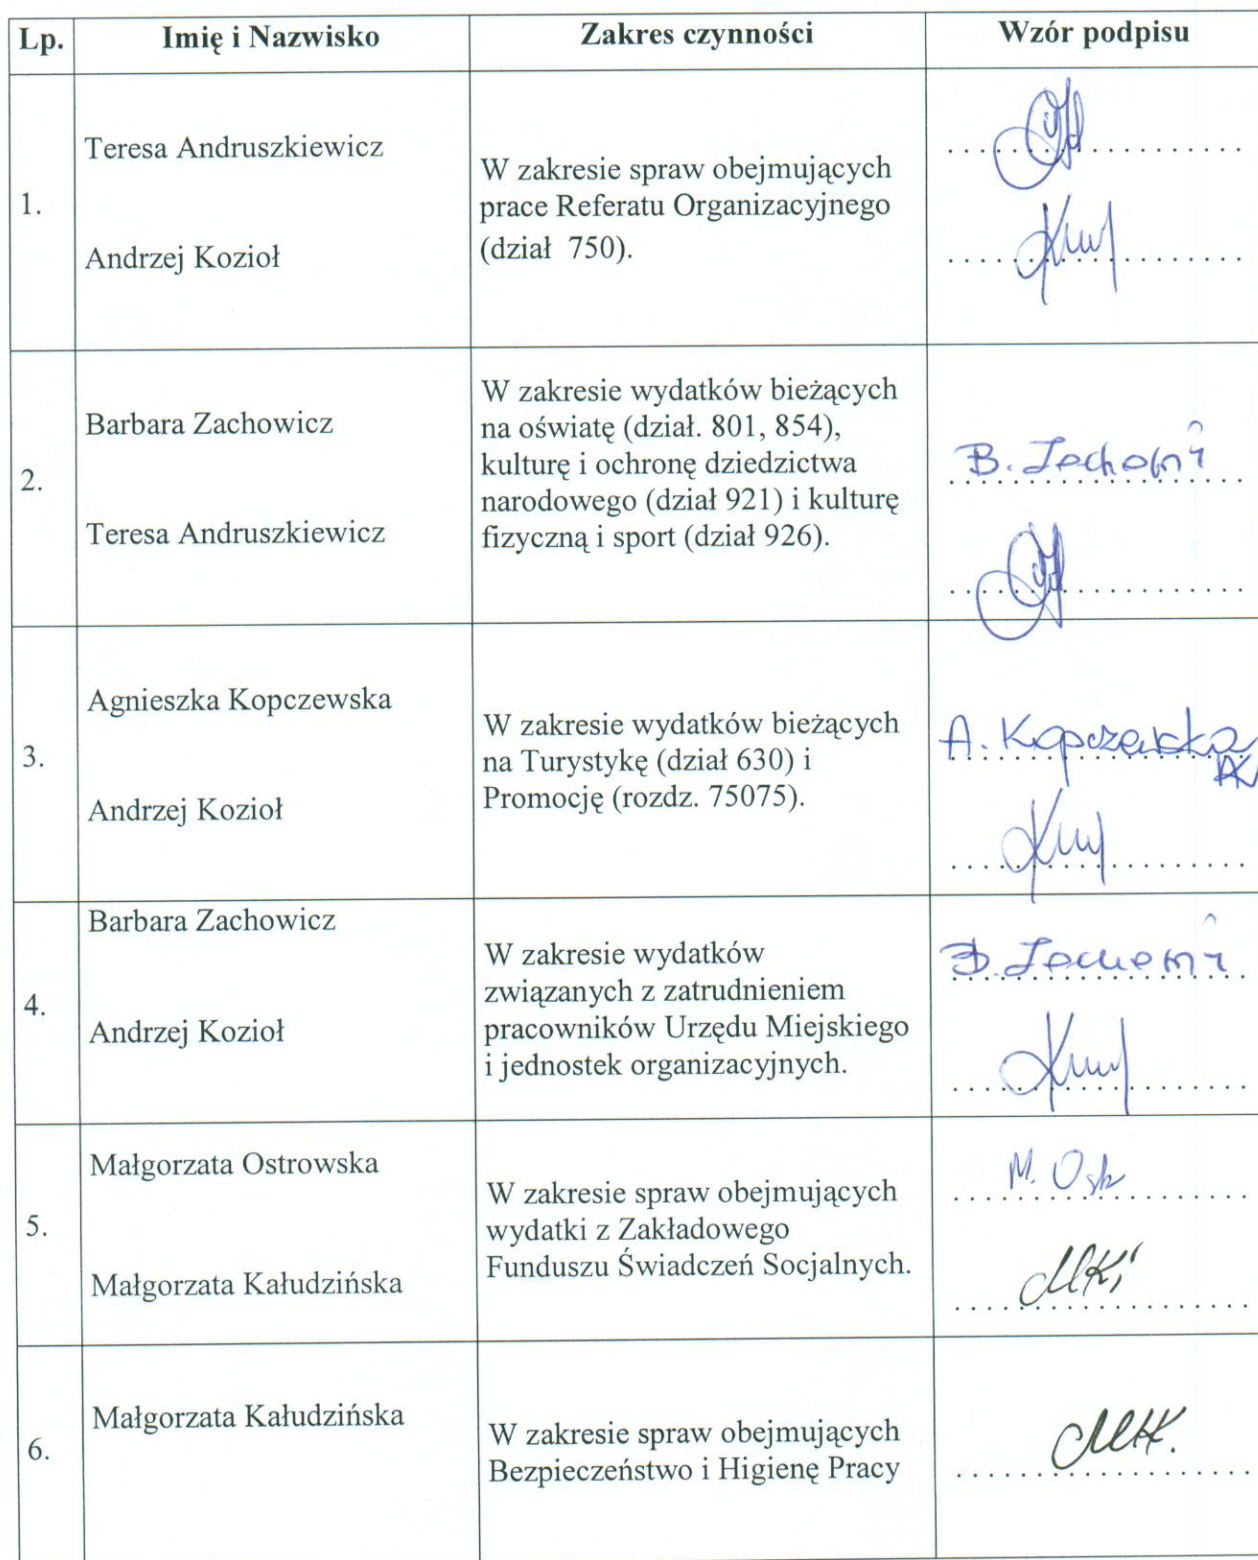 Lp. Imię i Nazwisko Zakres czynności Wzór podpisu
1.
Teresa Andruszkiewicz
Andrzej Kozioł
W zakresie spraw obejmujących
prace Referatu Organizacyjnego
(dział 750).
2.
Barbara Zachowicz
Teresa Andruszkiewicz
W zakresie wydatków bieżących
na oświatę (dział. 801, 854),
kulturę i ochronę dziedzictwa
narodowego (dział 921) i kulturę
fizyczną i sport (dział 926).
B.
3.
Agnieszka Kopczewska
Andrzej Kozioł
W zakresie wydatków bieżących
na Turystykę (dział 630) i
Promocję (rozdz. 75075).
A. Kopczewska
4.
Barbara Zachowicz
Andrzej Kozioł
W zakresie wydatków
związanych z zatrudnieniem
pracowników Urzędu Miejskiego
i jednostek organizacyjnych.
B.
5.
Małgorzata Ostrowska
Małgorzata Kałudzińska
W zakresie spraw obejmujących
wydatki z Zakładowego
Funduszu Świadczeń Socjalnych.
M.
6.
Małgorzata Kałudzińska
W zakresie spraw obejmujących
Bezpieczeństwo i Higienę Pracy